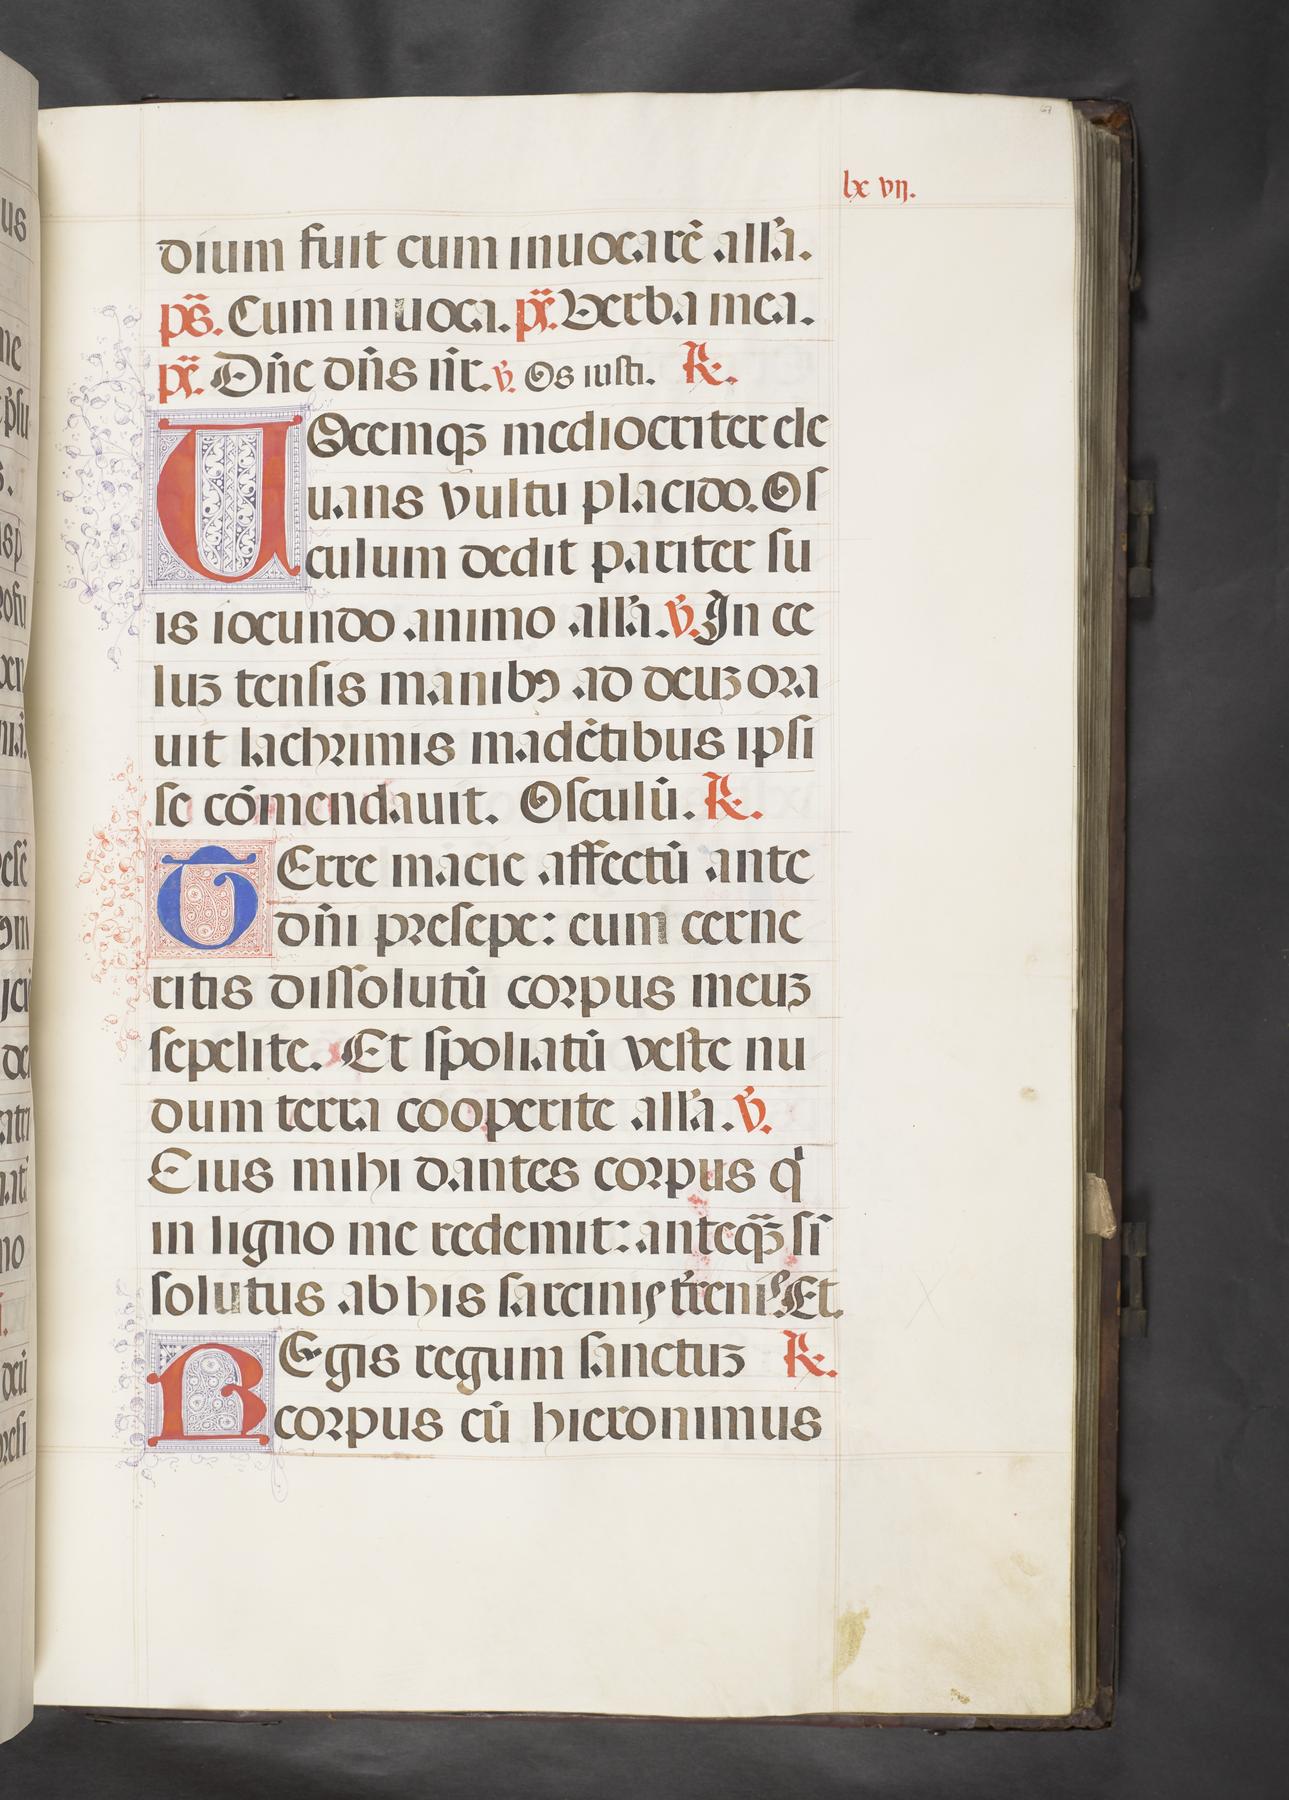 67
lx vij.
dium fuit cum inuocarē all'a.
ps̄. Cum inuoca. ps̄. Verba mea.
ps̄. Dn̄e dn̄s nr̄. v̄. Os iusti. R̄.
UOcemqꝫ mediocriter ele
uans vultu placido. Os
culum dedit pariter su
is iocundo animo all'a. v̄. In ce
luꝫ tensis manibꝯ ad deuꝫ ora
uit lachrimis madētibus ipsi
se cōmendauit. Osculū. R̄.
TErre macie affectū ante
dn̄i presepe: cum cerne
ritis dissolutū corpus meuꝫ
sepelite. Et spoliatū veste nu
dum terra cooperite all'a. v̄.
Eius mihi dantes corpus qⁱ
in ligno me redemit: anteq̄ꝫ sī
solutus ab his sarcinis t̄renis. Et.
REgis regum sanctuꝫ R̄.
corpus cū hieronimus